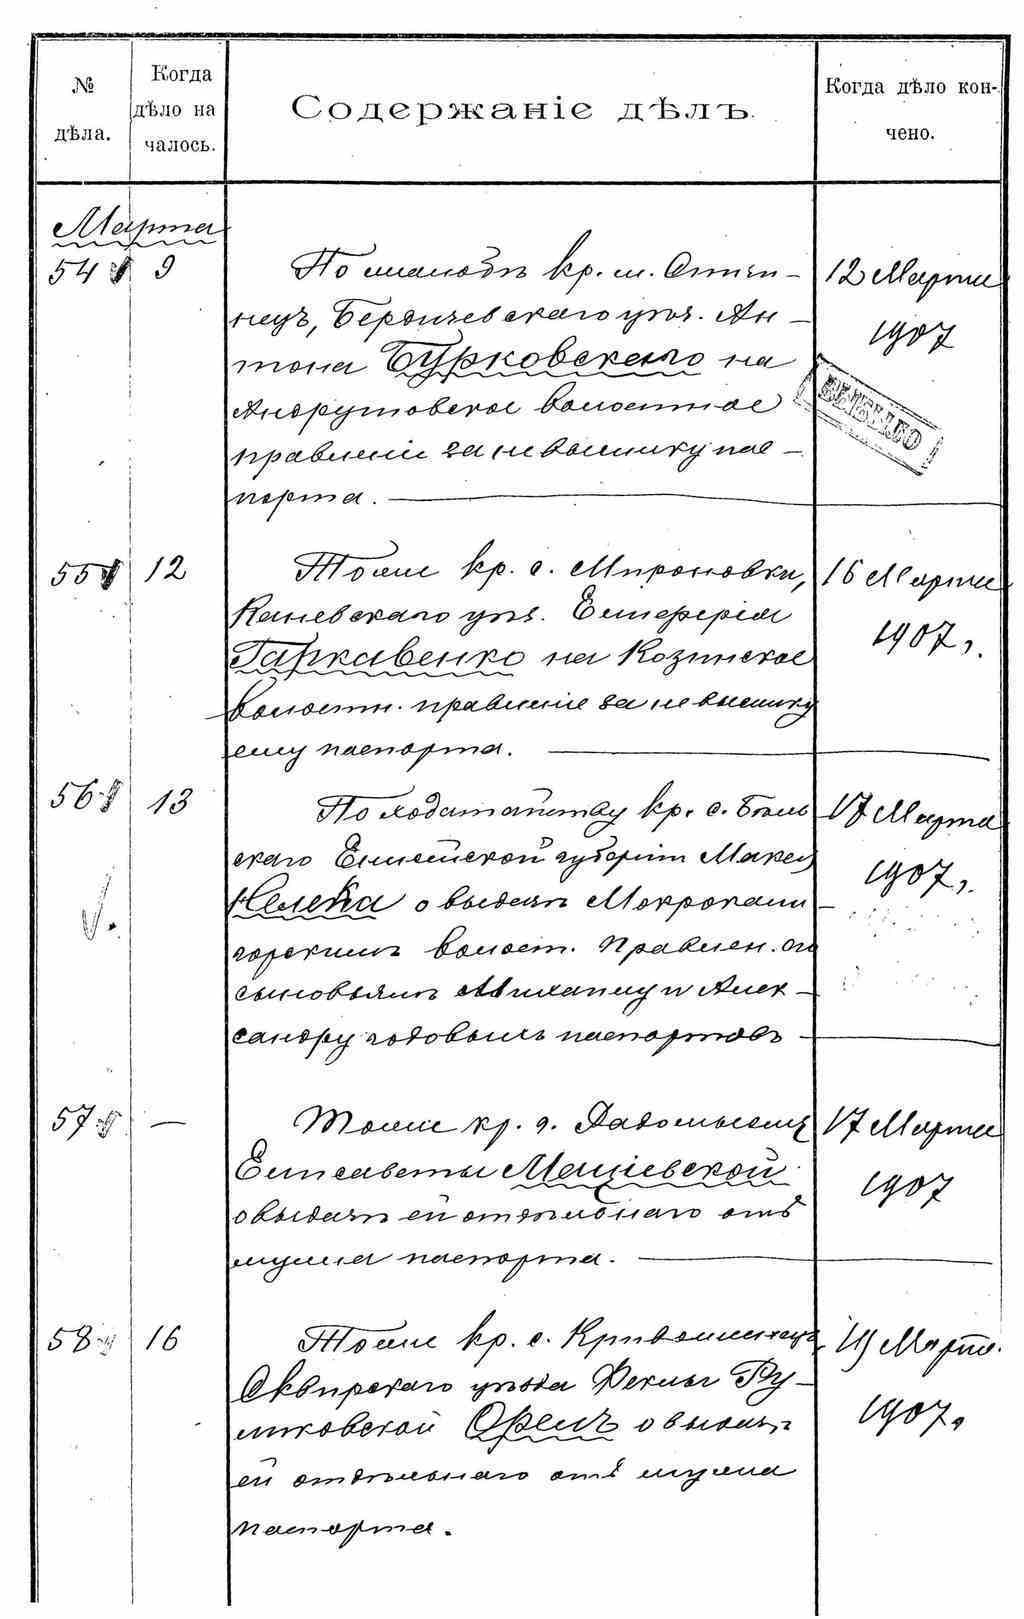 № дѣла.
Когда дѣло началось.
Содержаніе дѣлъ.
Когда дѣло кончено.
Марта
54 9 По жалобѣ кр. м.
нецъ, Бердичевскаго уѣз. Ан-
тона Бурковскаго на
Андрушовское волостное
правленіе за невысылку пас-
порта.
12 Марта
1907
55 12 Тоже кр. с. Мироновки,
Каневскаго уѣз. Елиферія
Гаркавенко на Козинское
волостн. правленіе за невысылку
ему паспорта.
16 Марта
1907 г.
56 13 По ходатайству кр. с. Бѣль
скаго Енисейской губерніи
о выдачѣ Мокрокали
горскимъ волост. Правлен. его
сыновьямъ Михаилу и Алек-
сандру годовыхъ паспортовъ
17 Марта
1907 г.
57 — Тоже кр. г. Радомысля
Елисаветы
о выдачѣ ей отдѣльнаго отъ
мужа паспорта.
17 Марта
1907
58 16 Тоже кр. с.
Сквирскаго уѣзда Феклы Ру-
жковской о выдачѣ
ей отдѣльнаго отъ мужа
паспорта.
19 Марта.
1907.